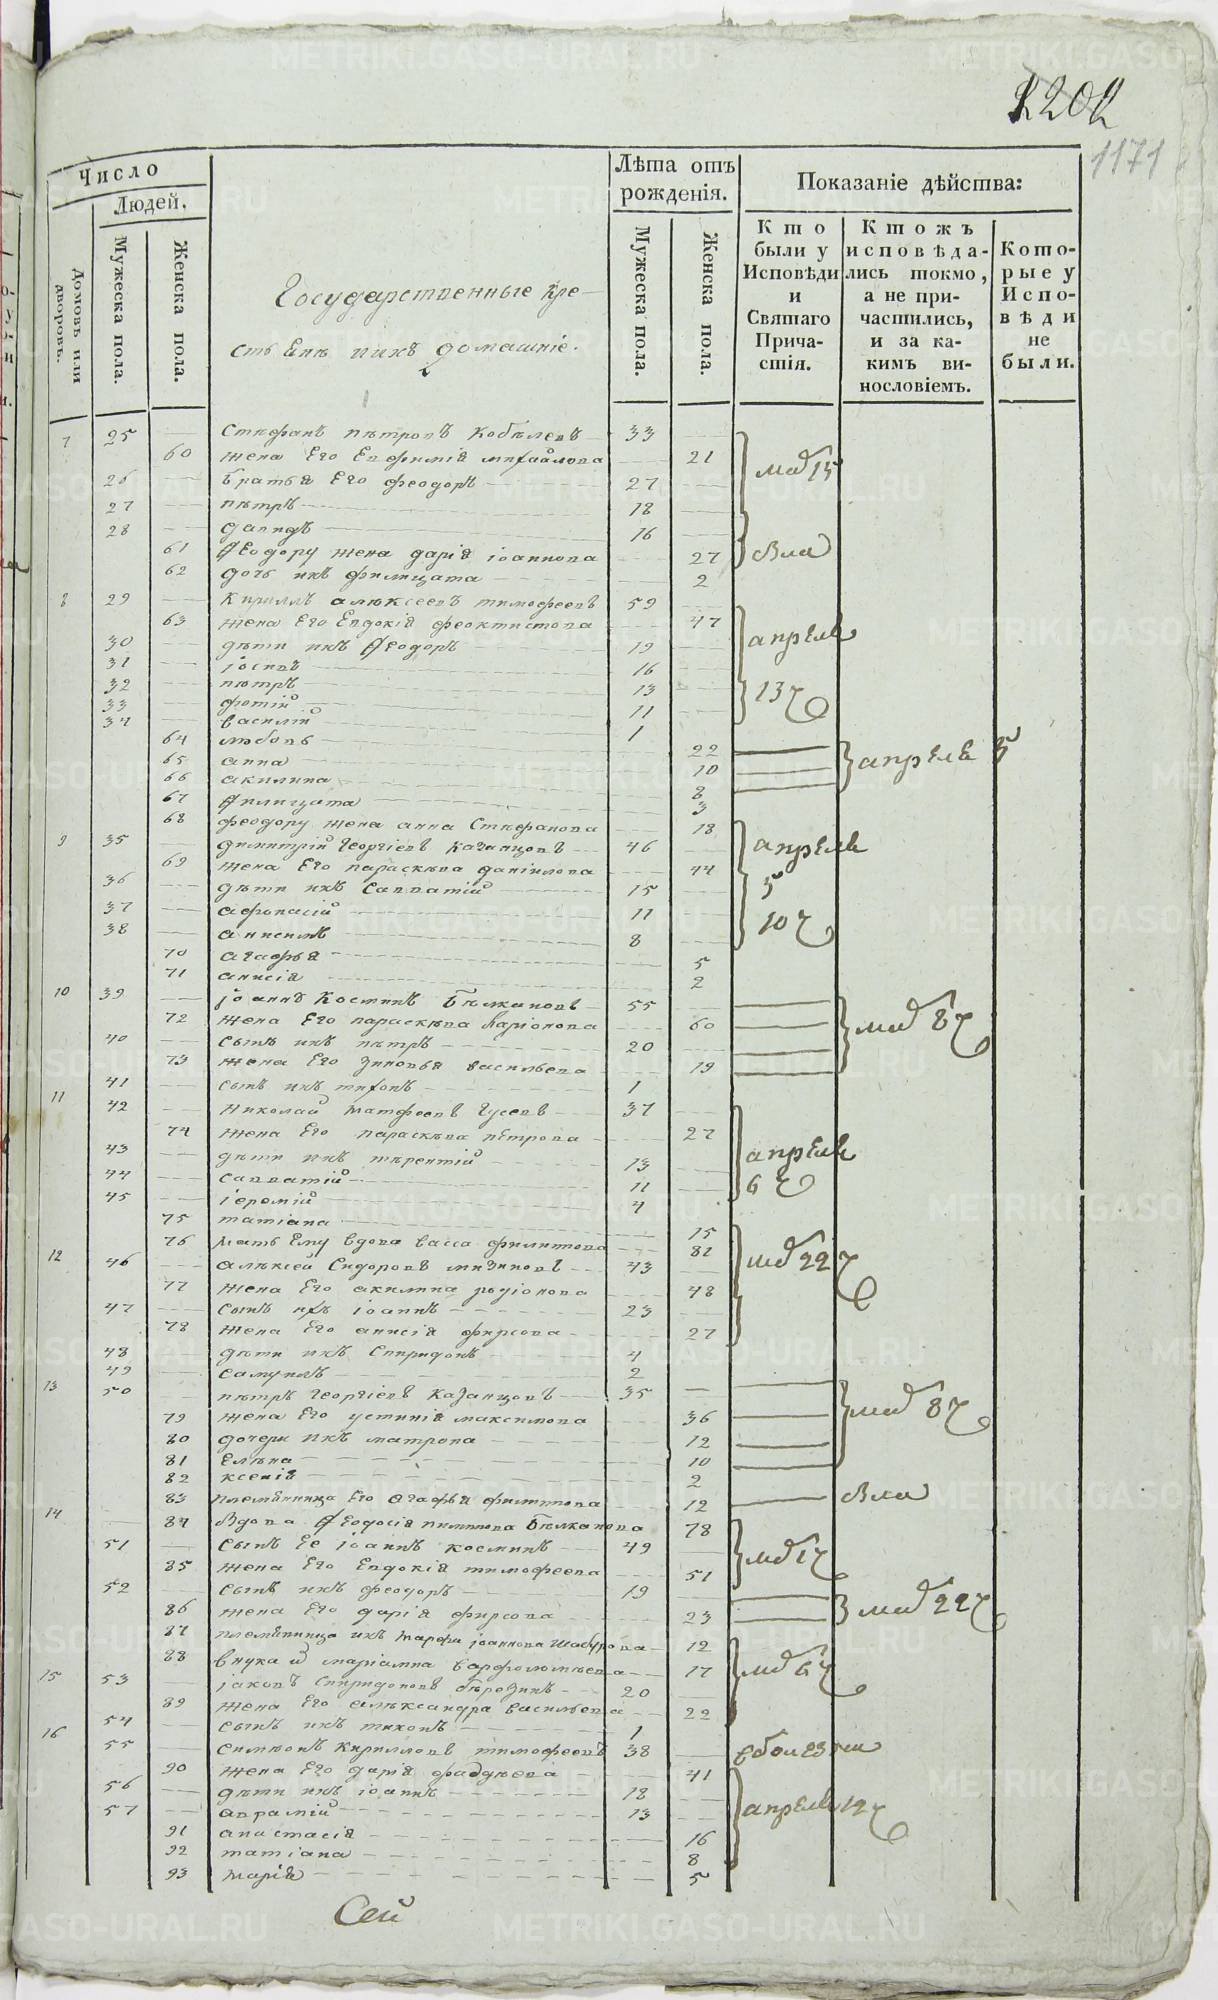 1202
1171
Число
Людей.
Домовъ или дворовъ.
Мужеска пола.
Женска пола.
Государственные кре-
стьѣне ихъ домашніе.
Лѣта отъ
рожденія.
Мужеска пола.
Женска пола.
Показаніе дѣйства:
Кто
были у
Исповѣди
и
Святаго
Прича-
стія.
Ктожъ
исповѣда-
лись токмо,
а не при-
частились,
и за ка-
кимъ ви-
нословіемъ.
Кото-
рые у
Испо-
вѣди
не
были.
7 25 Стефанъ пѣтровъ Кобѣлевъ 33
60 жена Его Евфимія михайлова 21
26 братья Его феодоръ 27
27 пѣтръ 18
28 давидъ 16
61 Феодору жена дарія іоаннова 27
62 дочь ихъ филицата 2
8 29 Кириллъ алѣксеевъ тимофеевъ 59
63 жена Его Евдокія феоктистова 47
30 дѣти ихъ Феодоръ 19
31 іосифъ 16
32 пѣтръ 13
33 фотій 11
34 василій 1
64 любовь 22
65 анна 10
66 акилина 8
67 Филицата 3
68 феодору жена анна Стефанова 18
9 35 димитрій Георгіевъ Казанцовъ 46
69 жена Его параскѣва даніилова 44
36 дѣти ихъ Савватій 15
37 афонасій 11
38 анисимъ 8
70 агафья 5
71 анисія 2
10 39 іоаннъ Косминъ Бѣлканов 55
72 жена Его параскѣва ларіонова 60
40 сынъ ихъ пѣтръ 20
73 жена Его зиновья васильева 19
41 сынъ ихъ тихонъ 1
11 42 Николай матфеевъ Гусевъ 37
74 жена Его параскѣва пѣтрова 27
43 дѣти ихъ терентій 13
44 савватій 11
45 іеремій 4
75 татіана 15
76 мать Ему вдова васса филипова 82
12 46 алѣксей Сидоровъ мизиновъ 43
77 жена Его акилина родіонова 48
47 сынъ ихъ іоаннъ 23
78 жена Его анисія фирсова 27
48 дѣти ихъ Спиридонъ 4
49 самуилъ 2
13 50 пѣтръ Георгіевъ Казанцовъ 35
79 жена Его устинія максимова 36
80 дочери ихъ матрона 12
81 Елѣна 10
82 ксенія 2
83 племянница Его агафья филиппова 12
14 84 вдова Феодосія пиминова Бѣлканова 78
51 сынъ Ее іоаннъ косминъ 49
85 жена Его Евдокія тимофеева 51
52 сынъ ихъ феодоръ 19
86 жена Его дарія фирсова 23
87 племянница ихъ марфа іоаннова шабурова 12
88 внука маріамна варфоломѣева 17
15 53 іаковъ Спиридоновъ бѣрезинъ 20
89 жена Его алѣксандра васильева 22
54 сынъ ихъ тихонъ 1
16 55 симѣонъ Кирилловъ тимофеевъ 38
90 жена Его дарія фаддѣева 41
56 дѣти ихъ іоаннъ 18
57 аврамій 13
91 анастасія 16
92 татіана 8
93 марія 5
маія 15
апрѣля
13
апрѣля 5
апрѣля
5
10
маія 8
апрѣля
6
маія 22
маія 8
маія 1
маія 22
маія 6
апрѣля 12
Сей
METRIKI.GASO-URAL.RU